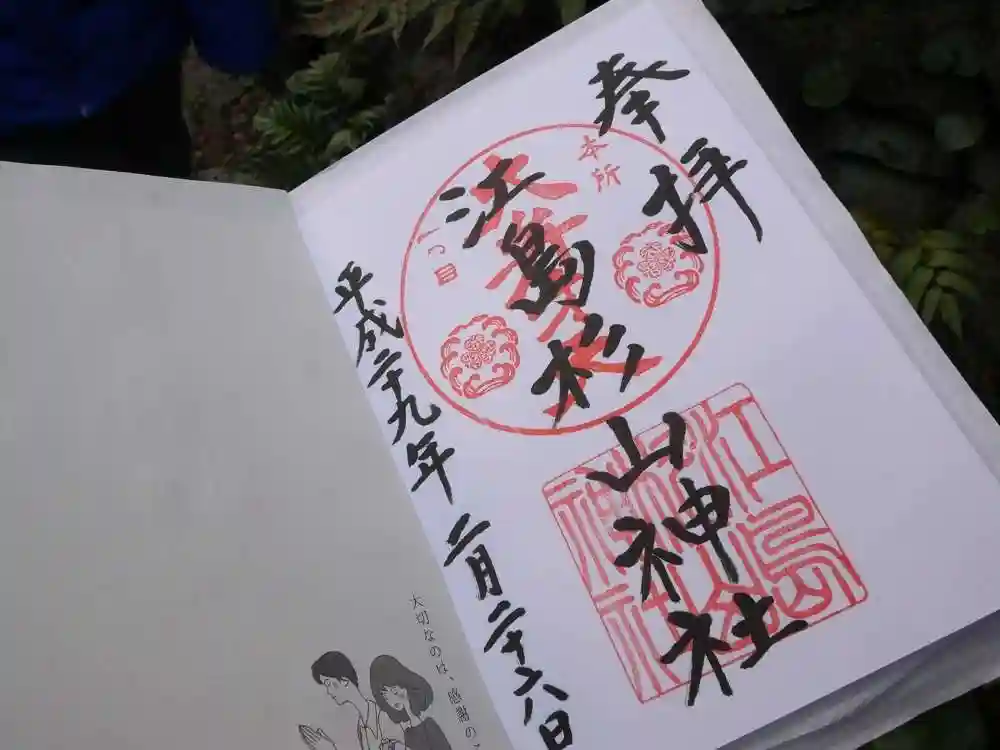 奉拝
本所
一つ目
江島杉山神社
江島杉山神社
平成二十九年二月二十六日
大切なのは、感謝の